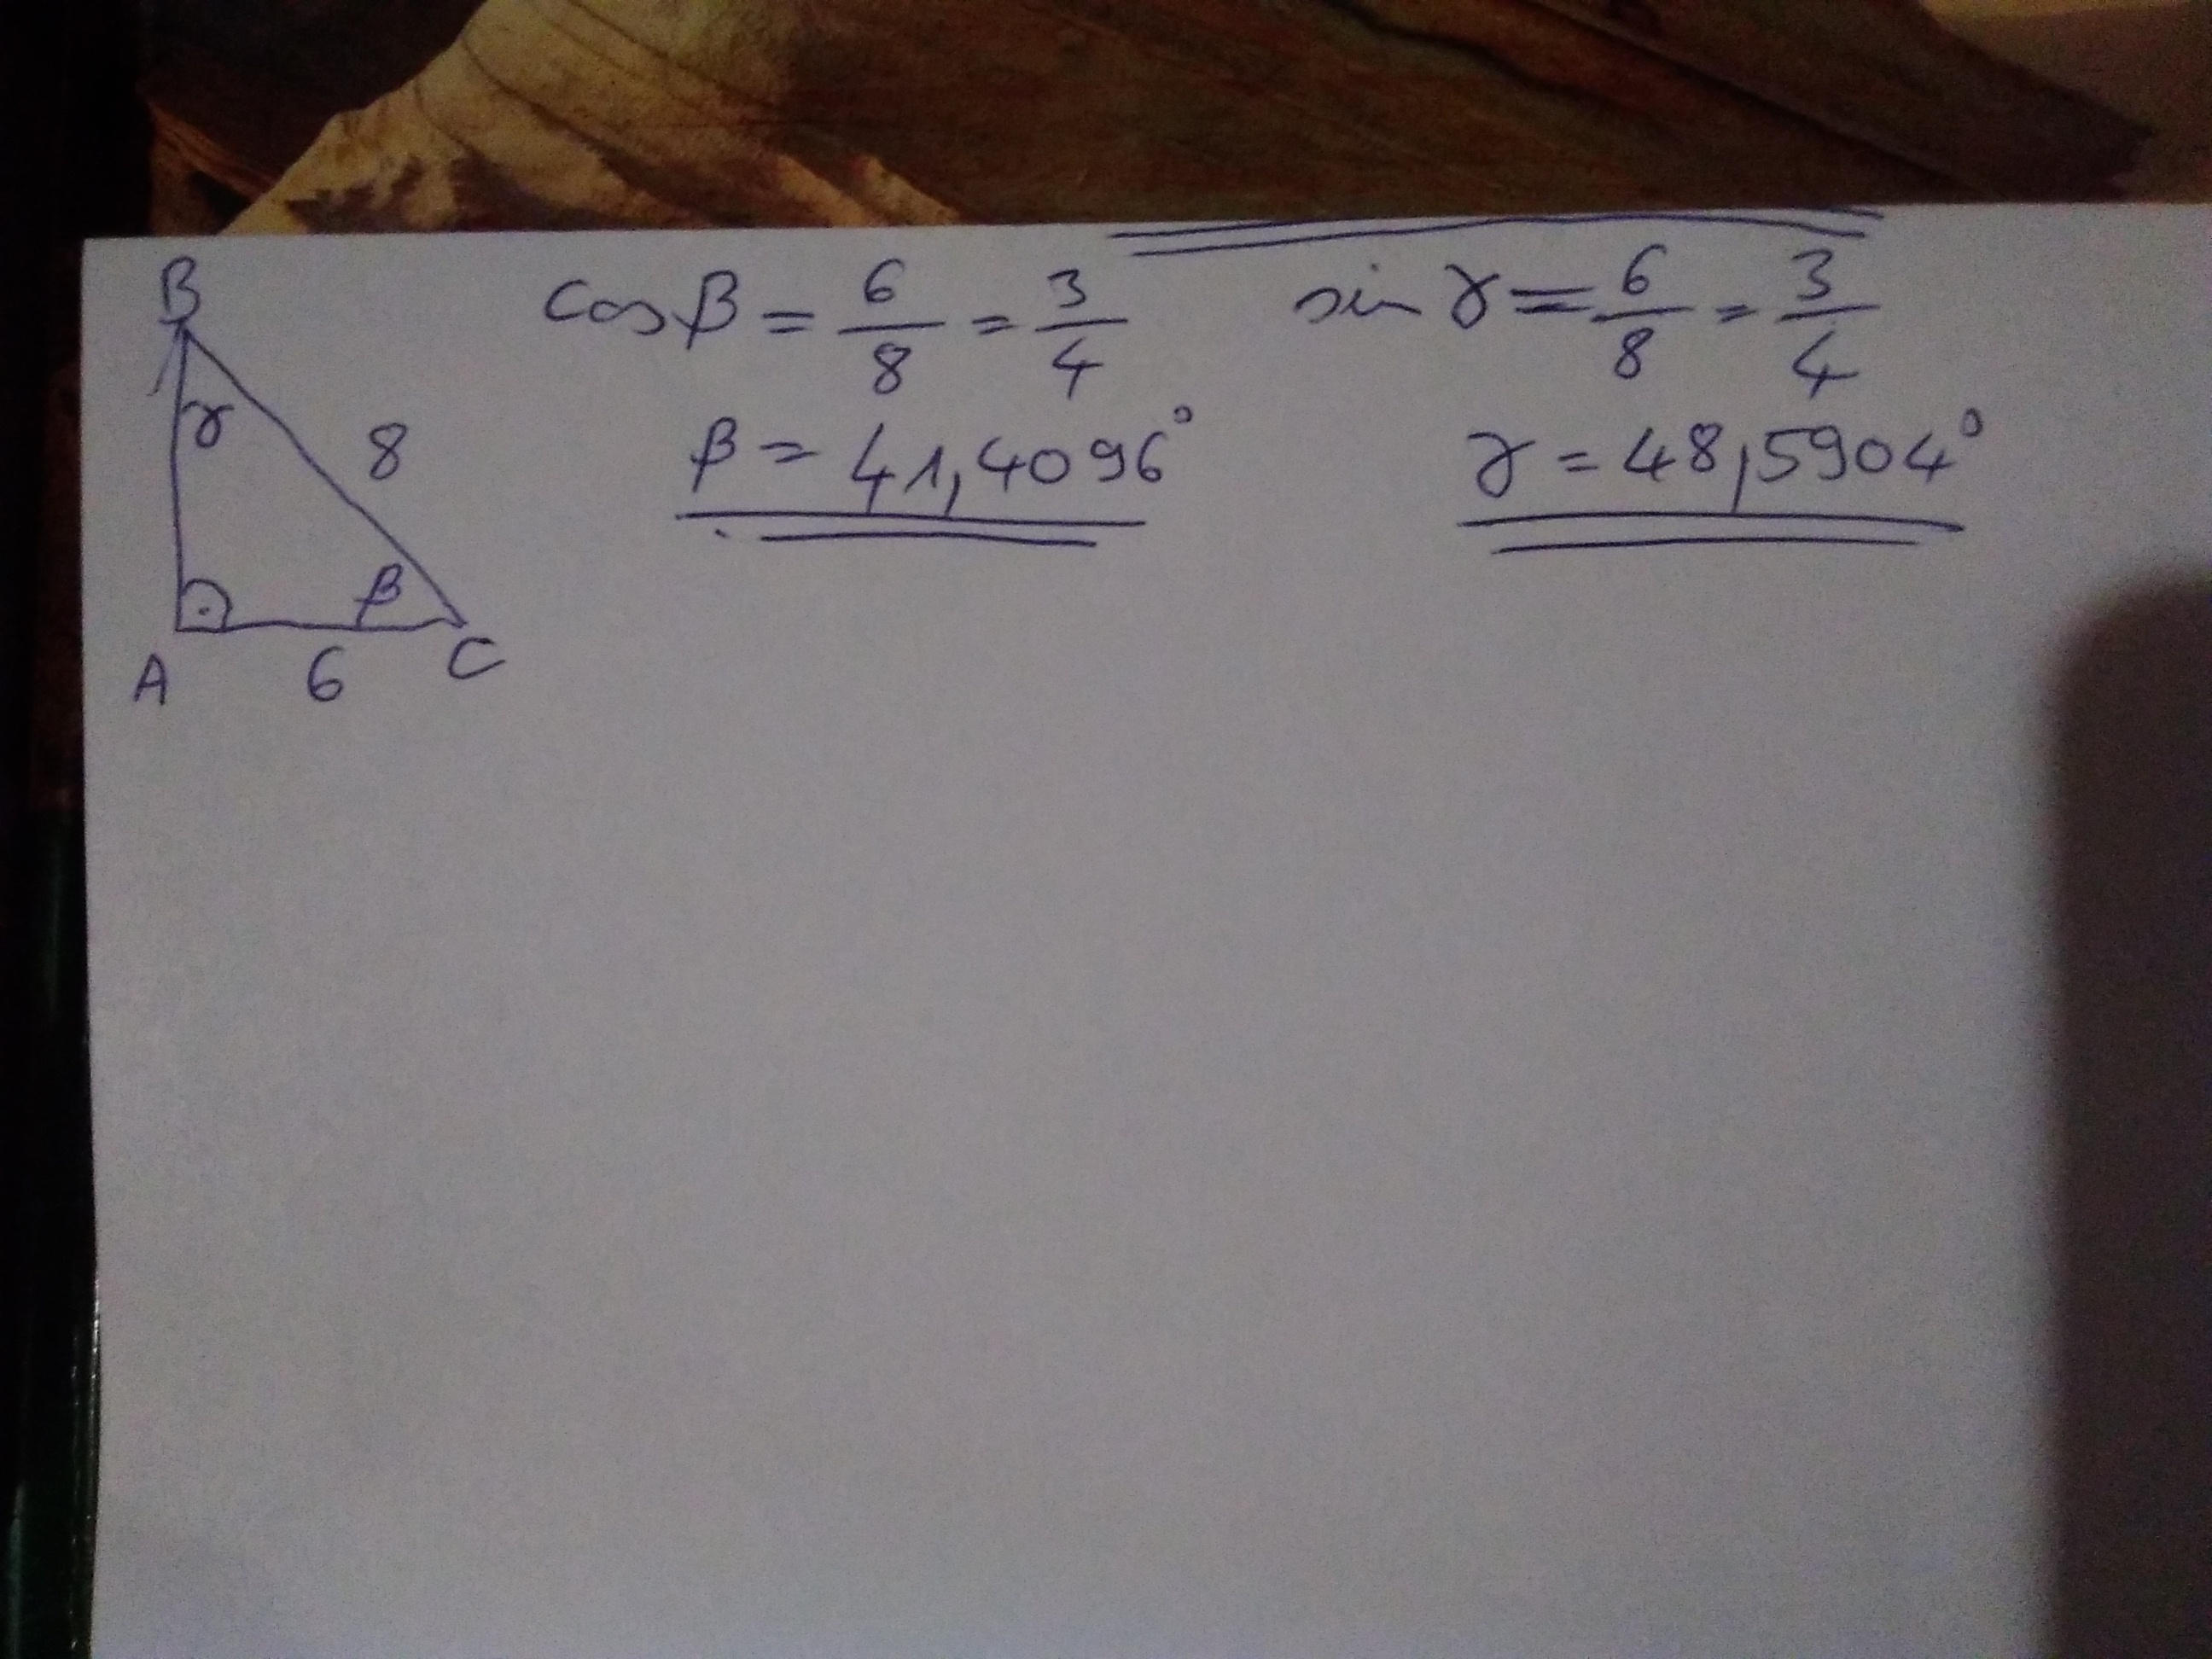 B
γ
8
β
A 6 C
cos β = 6/8 = 3/4
β = 41,4096°
sin γ = 6/8 = 3/4
γ = 48,5904°